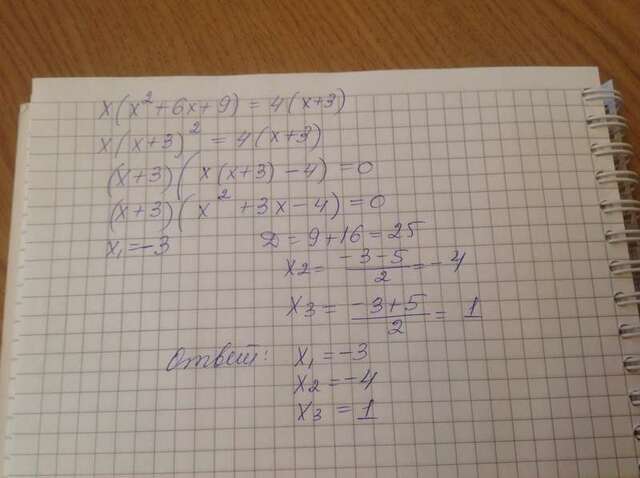 x(x²+6x+9)=4(x+3)
x(x+3)²=4(x+3)
(x+3)(x(x+3)-4)=0
(x+3)(x²+3x-4)=0
x₁=-3 D=9+16=25
x2=(-3-5)/2=-4
x3=(-3+5)/2=1
Ответ: x₁=-3
x2=-4
x3=1